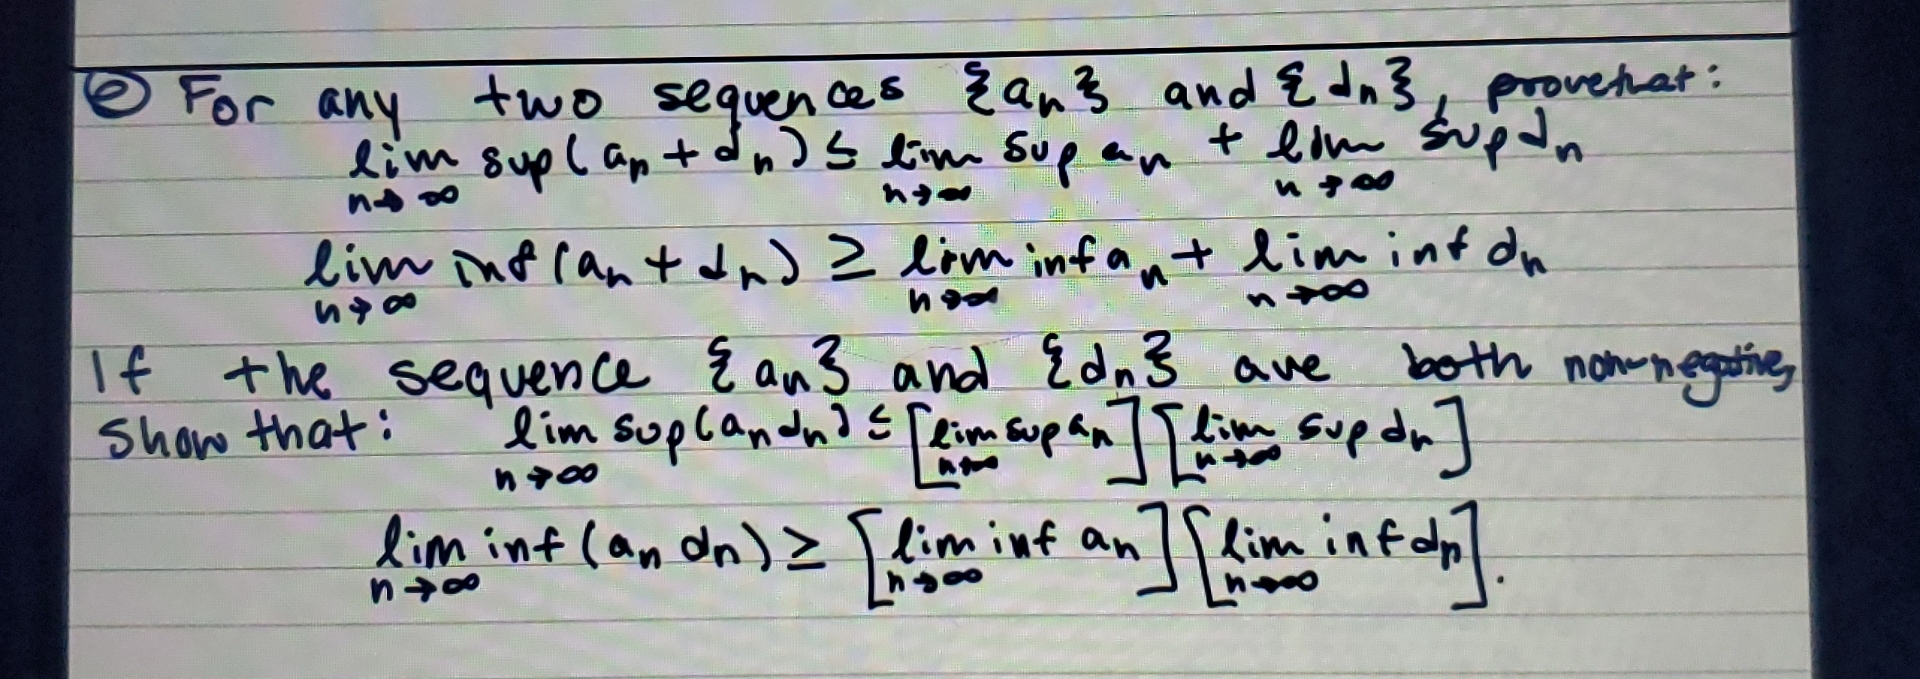 ⓔ For any two sequences {aₙ} and {dₙ}, prove that:
lim sup(aₙ + dₙ) ≤ lim sup aₙ + lim sup dₙ
n→∞ n→∞ n→∞
lim inf(aₙ + dₙ) ≥ lim inf aₙ + lim inf dₙ
n→∞ n→∞ n→∞
If the sequence {aₙ} and {dₙ} are both non-negative,
Show that: lim sup(aₙdₙ) ≤ [lim sup aₙ][lim sup dₙ]
n→∞ n→∞ n→∞
lim inf(aₙ dₙ) ≥ [lim inf aₙ][lim inf dₙ].
n→∞ n→∞ n→∞